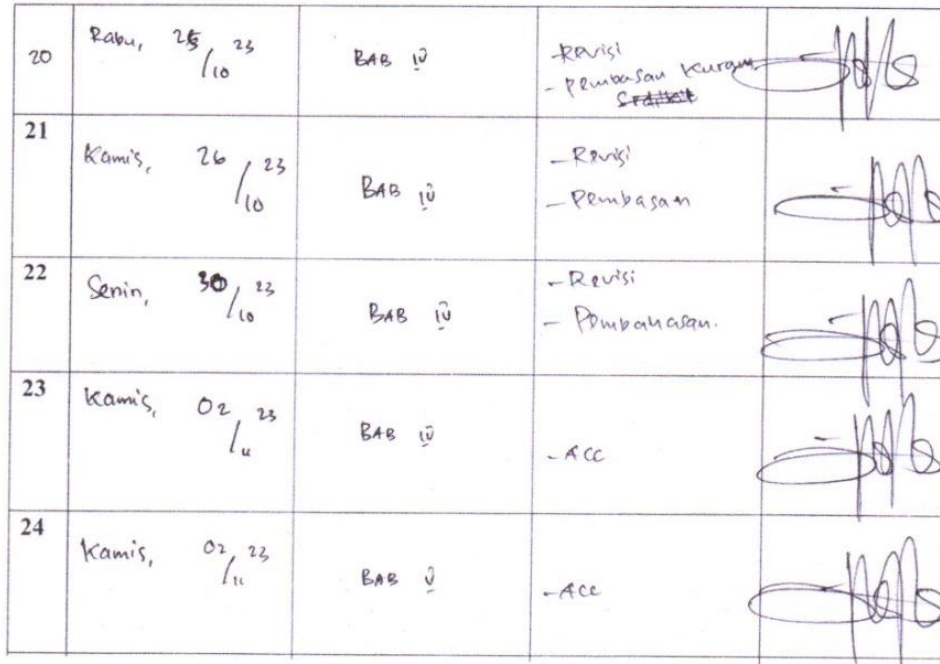 20 Rabu, 25/10 23 BAB IV - Revisi
- Pembasan Kurang
21 Kamis, 26/10 23 BAB IV - Revisi
- Pembasan
22 Senin, 30/10 23 BAB IV - Revisi
- Pembahasan.
23 Kamis, 02/11 23 BAB IV - ACC
24 Kamis, 02/11 23 BAB V - ACC